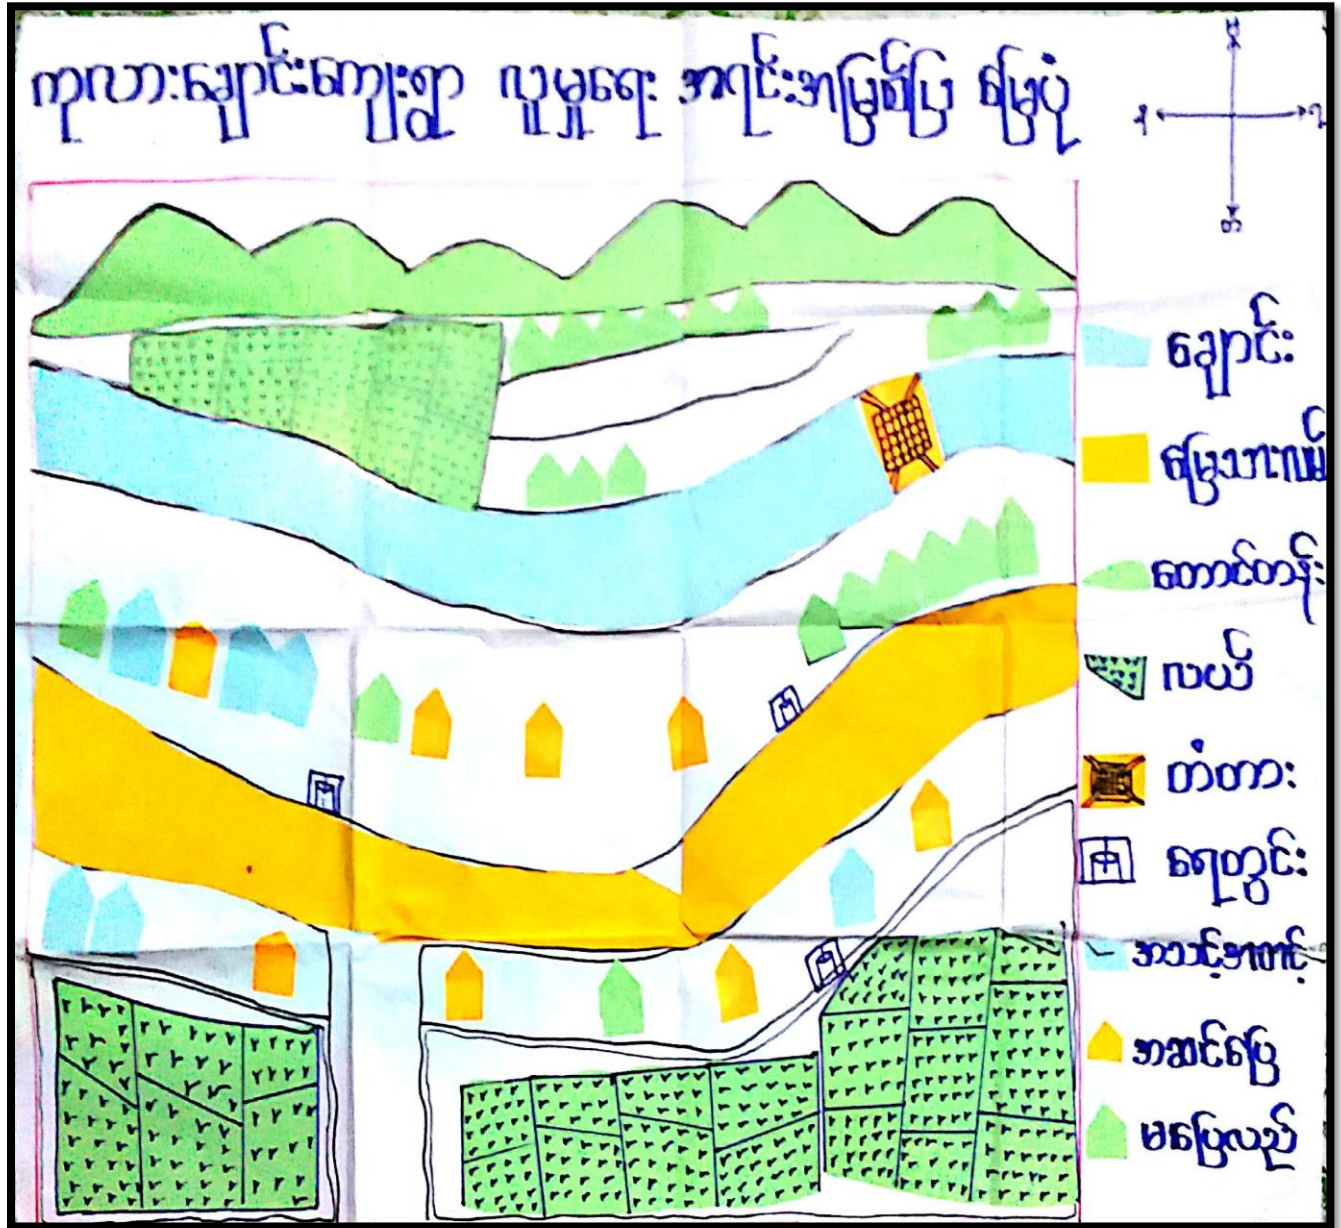 ကုလားချောင်းကျေးရွာ လူမှုရေး အရင်းအမြစ်ပြ မြေပုံ
မ
တ
ချောင်း
မြေသားလမ်း
တောင်တန်း
လယ်
တံတား
ရေတွင်း
အသင့်အတင့်
အဆင်ပြေ
မပြေလည်